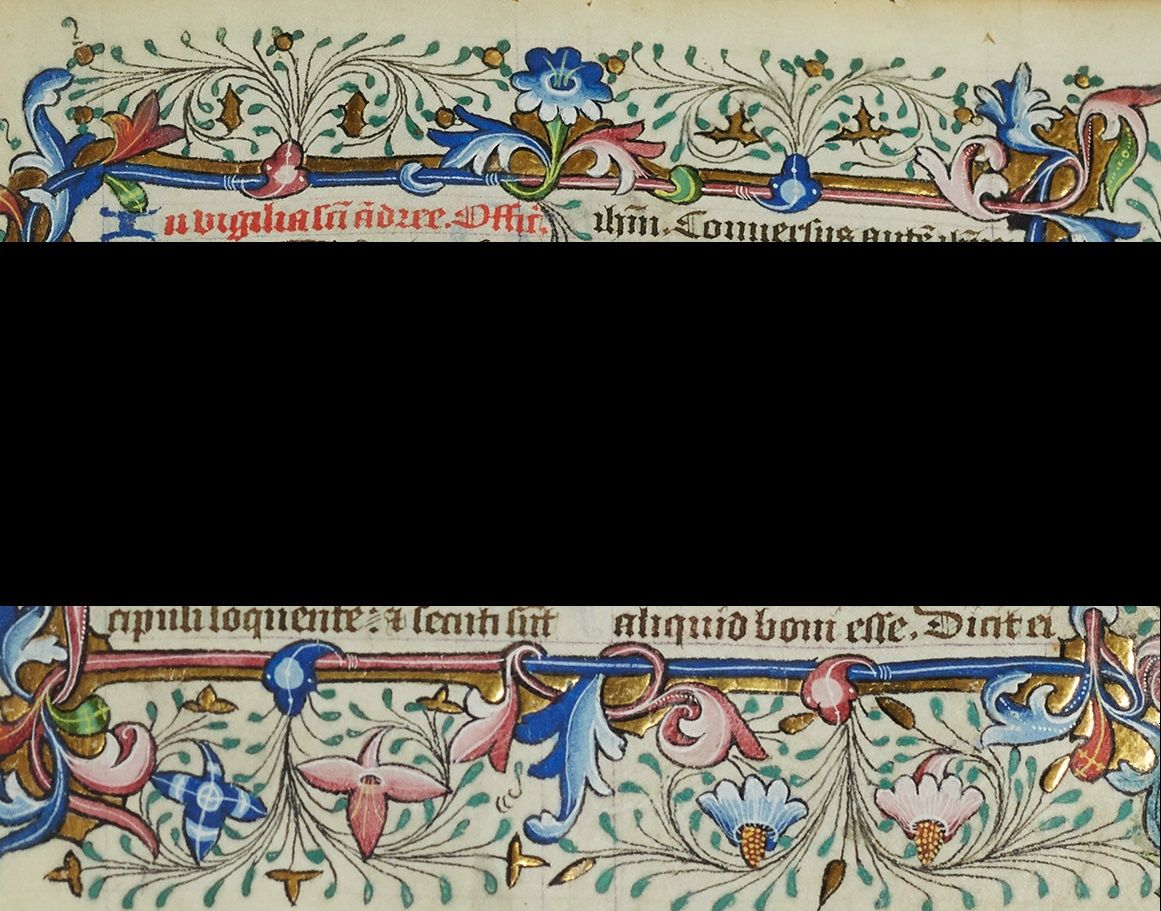 2
In vigilia sc̄i ādree. Offici.
ih̄m. Conuersus autē ih̄c
cipuli loquentē: ⁊ secuti sūt
aliquid boni esse. Dicit ei